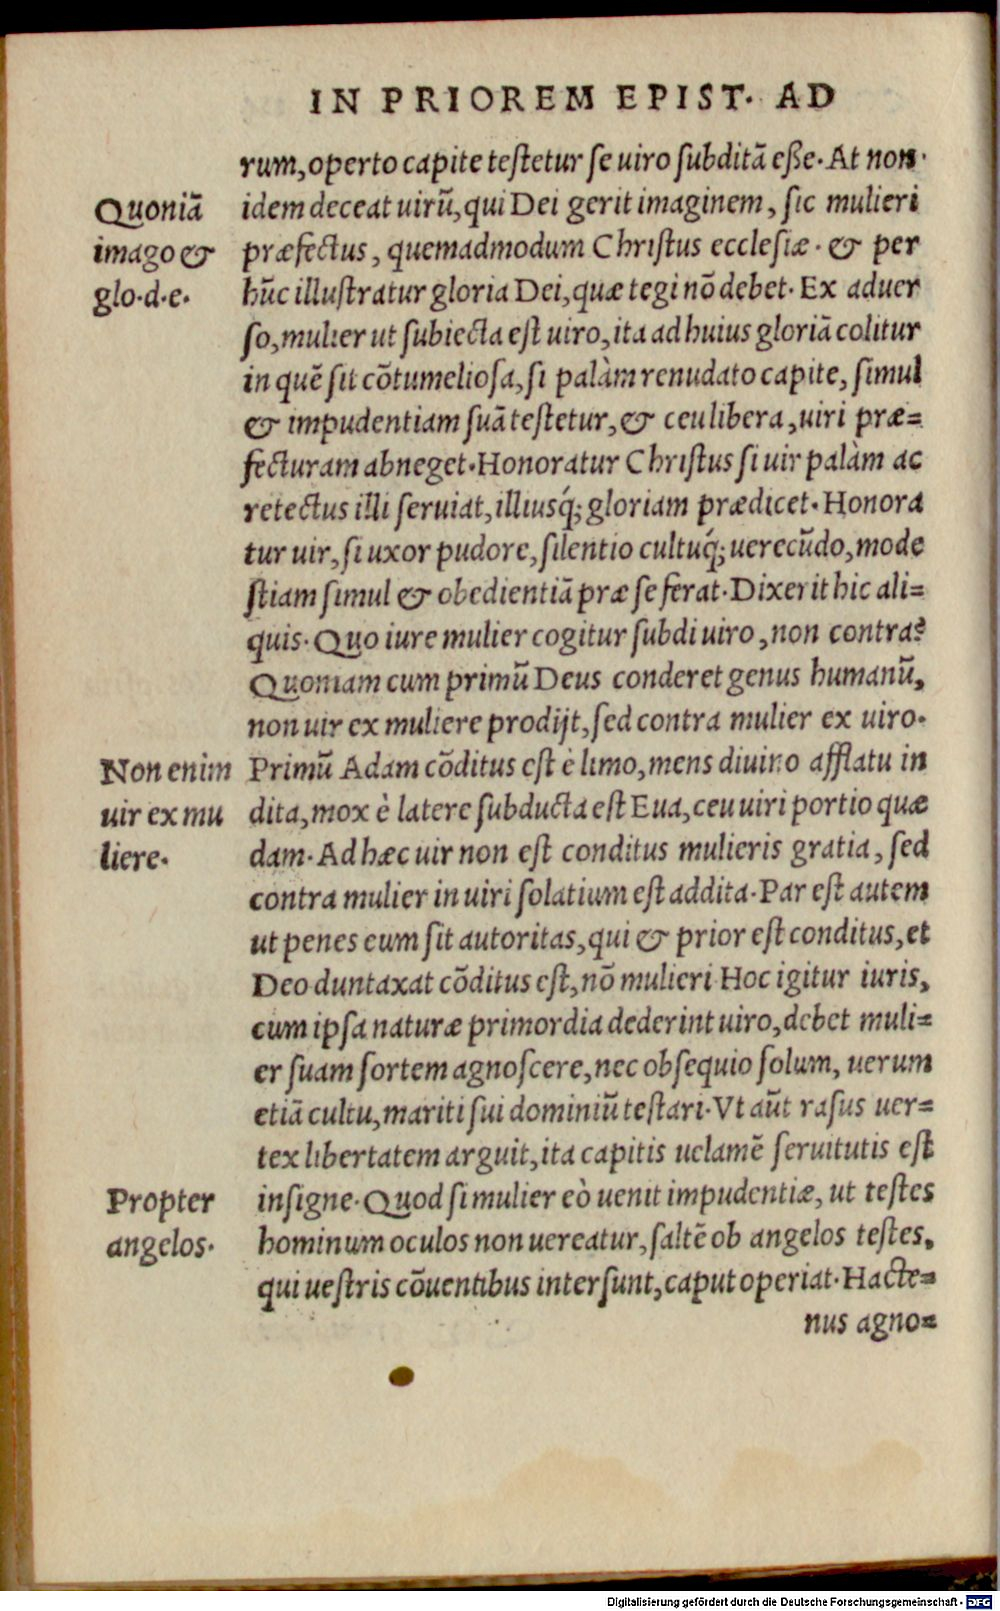 IN PRIOREM EPIST. AD
rum, operto capite testetur se uiro subditā eße. At non
Quoniā
imago &
glo.d.e.
idem deceat uirū, qui Dei gerit imaginem, sic mulieri
præfectus, quemadmodum Christus ecclesiæ. & per
hūc illustratur gloria Dei, quæ tegi nō debet. Ex aduer
so, mulier ut subiecta est uiro, ita ad huius gloriā colitur
in quē sit cōtumeliosa, si palàm renudato capite, simul
& impudentiam suā testetur, & ceu libera, uiri præ=
fecturam abneget. Honoratur Christus si uir palàm ac
retectus illi seruiat, illiusq́; gloriam prædicet. Honora
tur uir, si uxor pudore, silentio cultuq́; uerecūdo, mode
stiam simul & obedientiā præ se ferat. Dixerit hic ali=
quis. Quo iure mulier cogitur subdi uiro, non contra?
Quoniam cum primū Deus conderet genus humanū,
non uir ex muliere prodijt, sed contra mulier ex uiro.
Non enim
uir ex mu
liere.
Primū Adam cōditus est è limo, mens diuino afflatu in
dita, mox è latere subducta est Eua, ceu uiri portio quæ
dam. Ad hæc uir non est conditus mulieris gratia, sed
contra mulier in uiri solatium est addita. Par est autem
ut penes eum sit autoritas, qui & prior est conditus, et
Deo duntaxat cōditus est, nō mulieri Hoc igitur iuris,
cum ipsa naturæ primordia dederint uiro, debet muli=
er suam sortem agnoscere, nec obsequio solum, uerum
etiā cultu, mariti sui dominiū testari. Vt aūt rasus uer=
tex libertatem arguit, ita capitis uelamē seruitutis est
Propter
angelos.
insigne. Quod si mulier eò uenit impudentiæ, ut testes
hominum oculos non uereatur, saltē ob angelos testes,
qui uestris cōuentibus intersunt, caput operiat. Hacte=
nus agno=
Digitalisierung gefördert durch die Deutsche Forschungsgemeinschaft - DFG